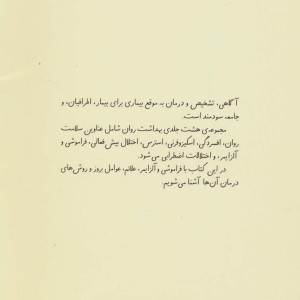 آگاهی، تشخیص و درمان به موقع بیماری برای بیمار، اطرافیان، و
جامعه سودمند است.
مجموعه‌ی هشت جلدی بهداشت روان شامل عناوین سلامت
روان، افسردگی، اسکیزوفرنی، استرس، اختلال بیش فعالی، فراموشی و
آلزایمر، و اختلالات اضطرابی می‌شود.
در این کتاب با فراموشی و آلزایمر، علائم، عوامل بروز و روش‌های
درمان آن‌ها آشنا می‌شویم.